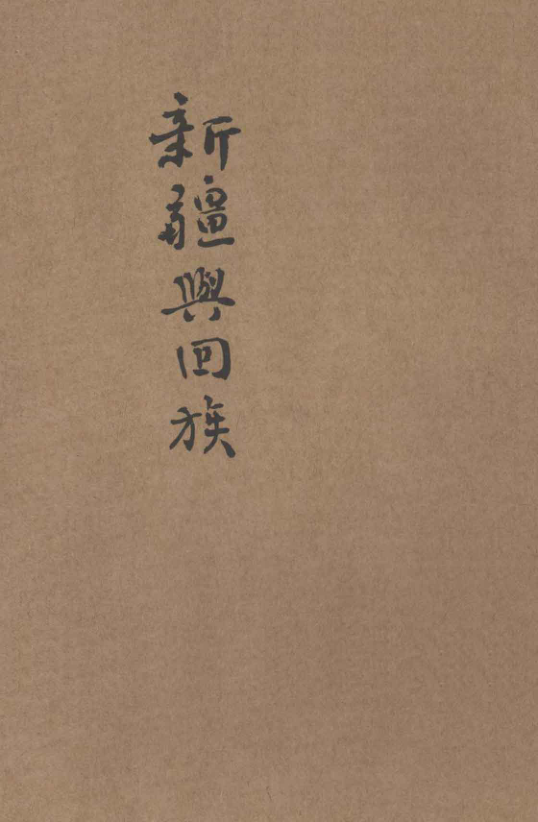 新疆與回族